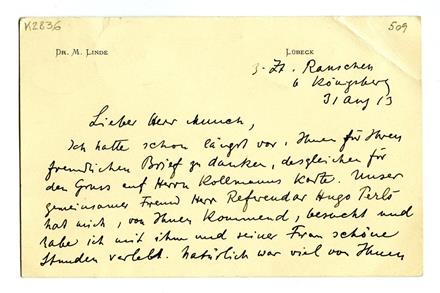 K2836
509
DR. M. LINDE
LÜBECK
z. Zt. Rauschen
b Königsberg
31 Aug 13
Lieber Herr Munch,
Ich hatte schon längst vor, Ihnen für Ihren
freundlichen Brief zu danken, desgleichen für
den Gruss auf Herrn Kollmanns Karte. Unser
gemeinsamer Freund Herr Referendar Hugo Perls
hat mich, von Ihnen kommend, besucht und
habe ich mit ihm und seiner Frau schöne
Stunden verlebt. Natürlich war viel von Ihnen